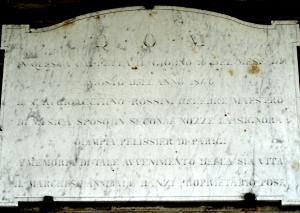 IN QUESTA CAPPELLA IL GIORNO 16 DEL MESE DI
AGOSTO DELL'ANNO 1846
IL CAV. GIOACCHINO ROSSINI CELEBRE MAESTRO
DI MUSICA SPOSO IN SECONDE NOZZE LA SIGNORA
OLIMPIA PELISSIER DI PARIGI
A MEMORIA DI TALE AVVENIMENTO DELLA SUA VITA
IL MARCHESE ANNIBALE BANZI PROPRIETARIO POSE